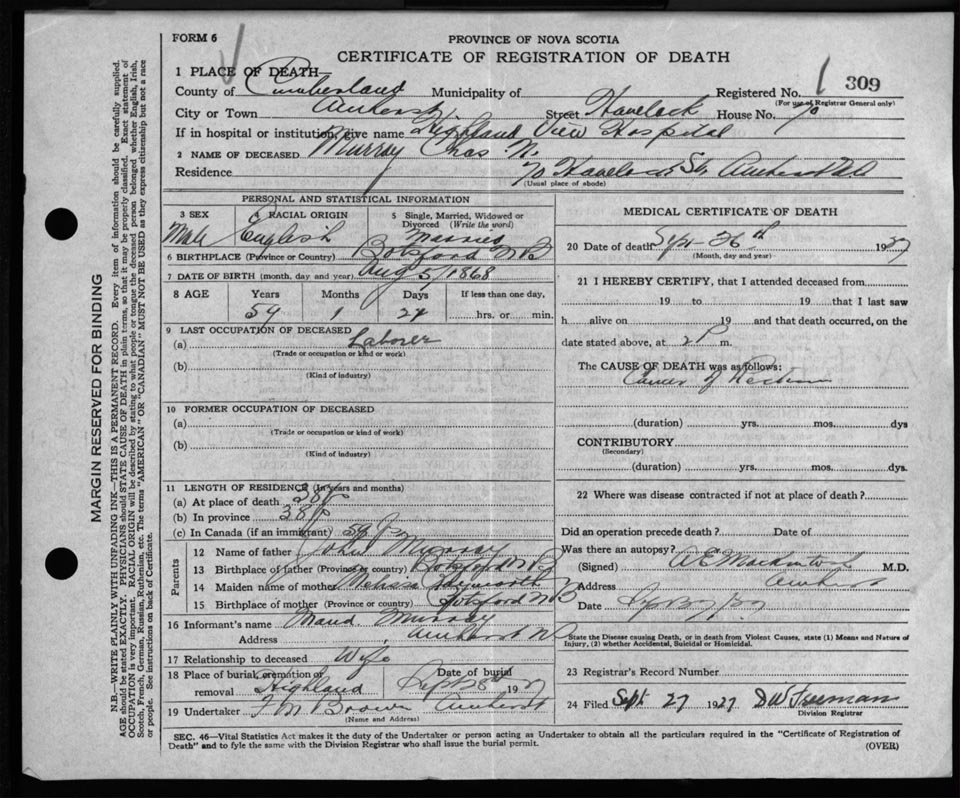 FORM 6
PROVINCE OF NOVA SCOTIA
CERTIFICATE OF REGISTRATION OF DEATH
1 PLACE OF DEATH
County of Cumberland Municipality of Registered No. 1 309
(For use of Registrar General only)
City or Town Amherst Street Havelock House No. 70
If in hospital or institution, give name Highland View Hospital
2 NAME OF DECEASED Murray Chas N.
Residence 70 Havelock St, Amherst NS
(Usual place of abode)
PERSONAL AND STATISTICAL INFORMATION
3 SEX Male
4 RACIAL ORIGIN English
5 Single, Married, Widowed or Divorced (Write the word) Married
6 BIRTHPLACE (Province or Country) Botsford NB
7 DATE OF BIRTH (month, day and year) Aug 5/1868
8 AGE Years Months Days If less than one day,
59 1 21 hrs. or min.
9 LAST OCCUPATION OF DECEASED
(a) Laborer
(Trade or occupation or kind or work)
(b)
(Kind of industry)
10 FORMER OCCUPATION OF DECEASED
(a)
(Trade or occupation or kind of work)
(b)
(Kind of industry)
11 LENGTH OF RESIDENCE (In years and months)
(a) At place of death 38 yr
(b) In province 38 yr
(c) In Canada (if an immigrant) 59 yr
Parents
12 Name of father John Murray
13 Birthplace of father (Province or country) Botsford NB
14 Maiden name of mother Melissa
15 Birthplace of mother (Province or country) Botsford NB
16 Informant's name Maud Murray
Address Amherst NS
17 Relationship to deceased Wife
18 Place of burial, cremation or removal Highland Date of burial Sept 28th 1927
19 Undertaker F M Brown Amherst
(Name and Address)
MEDICAL CERTIFICATE OF DEATH
20 Date of death Sept 26th 1927
(Month, day and year)
21 I HEREBY CERTIFY, that I attended deceased from
19 to 19 that I last saw
h alive on 19 and that death occurred, on the
date stated above, at 2 P m.
The CAUSE OF DEATH was as follows:
Cancer of Rectum
(duration) yrs. mos. dys
CONTRIBUTORY
(Secondary)
(duration) yrs. mos. dys.
22 Where was disease contracted if not at place of death?
Did an operation precede death? Date of
Was there an autopsy?
(Signed) A E Mackintosh M.D.
Address Amherst
Date Sep 27/27
State the Disease causing Death, or in death from Violent Causes, state (1) Means and Nature of
Injury, (2) whether Accidental, Suicidal or Homicidal.
23 Registrar's Record Number
24 Filed Sept. 27 1927 D W Freeman
Division Registrar
SEC. 46—Vital Statistics Act makes it the duty of the Undertaker or person acting as Undertaker to obtain all the particulars required in the "Certificate of Registration of
Death" and to fyle the same with the Division Registrar who shall issue the burial permit.
(OVER)
MARGIN RESERVED FOR BINDING
N.B.—WRITE PLAINLY WITH UNFADING INK—THIS IS A PERMANENT RECORD. Every item of information should be carefully supplied.
AGE should be stated EXACTLY. PHYSICIANS should STATE CAUSE OF DEATH in plain terms, so that it may be properly classified. Exact statement of
OCCUPATION is very important. RACIAL ORIGIN will be described by stating to what people or tongue the deceased person belonged whether English, Irish,
Scotch, French, German, Russian, Ruthenian, etc. The terms "AMERICAN" OR "CANADIAN" MUST NOT BE USED as they express citizenship but not a race
or people. See instructions on back of Certificate.